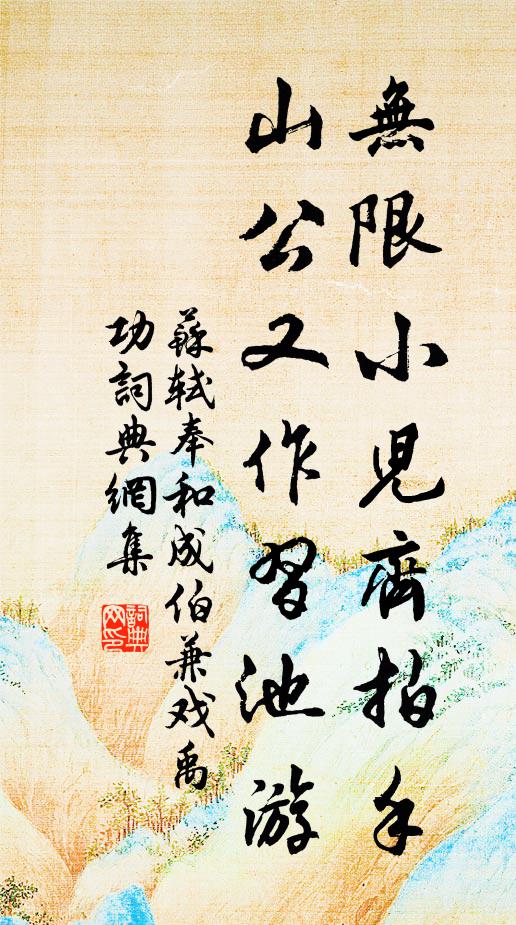 無限小児齊拍手
山公又作習池游
蘇軾奉和成伯兼戏禹
功詞典網集
詞典
网